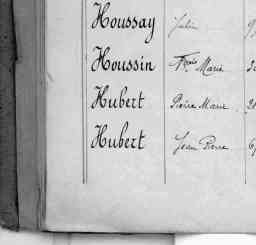 Houssay Julien
Houssin Frçois Marie
Hubert Pierre Marie
Hubert Jean Pierre